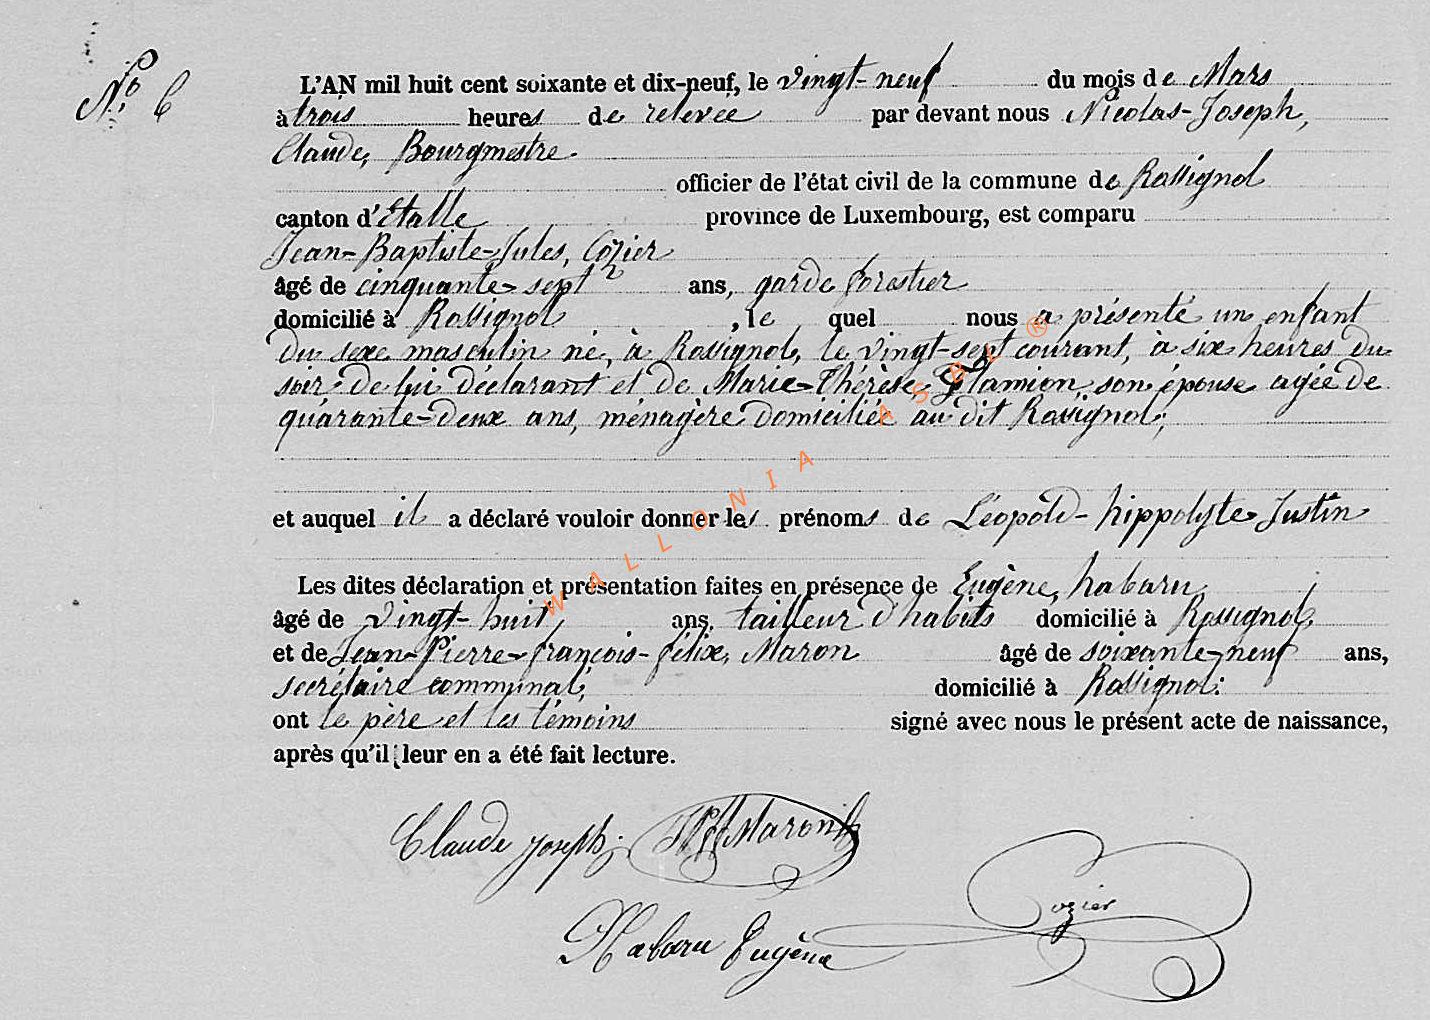 N° 6
L'AN mil huit cent soixante et dix-neuf, le vingt-neuf du mois de Mars
à trois heures de relevée par devant nous Nicolas-Joseph,
Claude, Bourgmestre
officier de l'état civil de la commune de Rossignol
canton d'Etalle province de Luxembourg, est comparu
Jean-Baptiste-Jules, Cozier
âgé de cinquante-sept ans, garde forestier
domicilié à Rossignol, le quel nous a présenté un enfant
du sexe masculin né, à Rossignol, le vingt-sept courant, à six heures du
soir de lui déclarant et de Marie-Thérèse, son épouse agée de
quarante-deux ans, ménagère domiciliée au dit Rossignol;
et auquel il a déclaré vouloir donner les prénoms de Léopold-hippolyte Justin
Les dites déclaration et présentation faites en présence de Eugène, habaru,
âgé de vingt-huit ans, tailleur d'habits domicilié à Rossignol,
et de Jean-Pierre-françois-félix, Maron âgé de soixante-neuf ans,
secrétaire communal, domicilié à Rossignol:
ont le père et les témoins signé avec nous le présent acte de naissance,
après qu'il leur en a été fait lecture.
Claude Joseph. Maron
Cozier
Habaru Eugène
WALLONIA ASBL ®